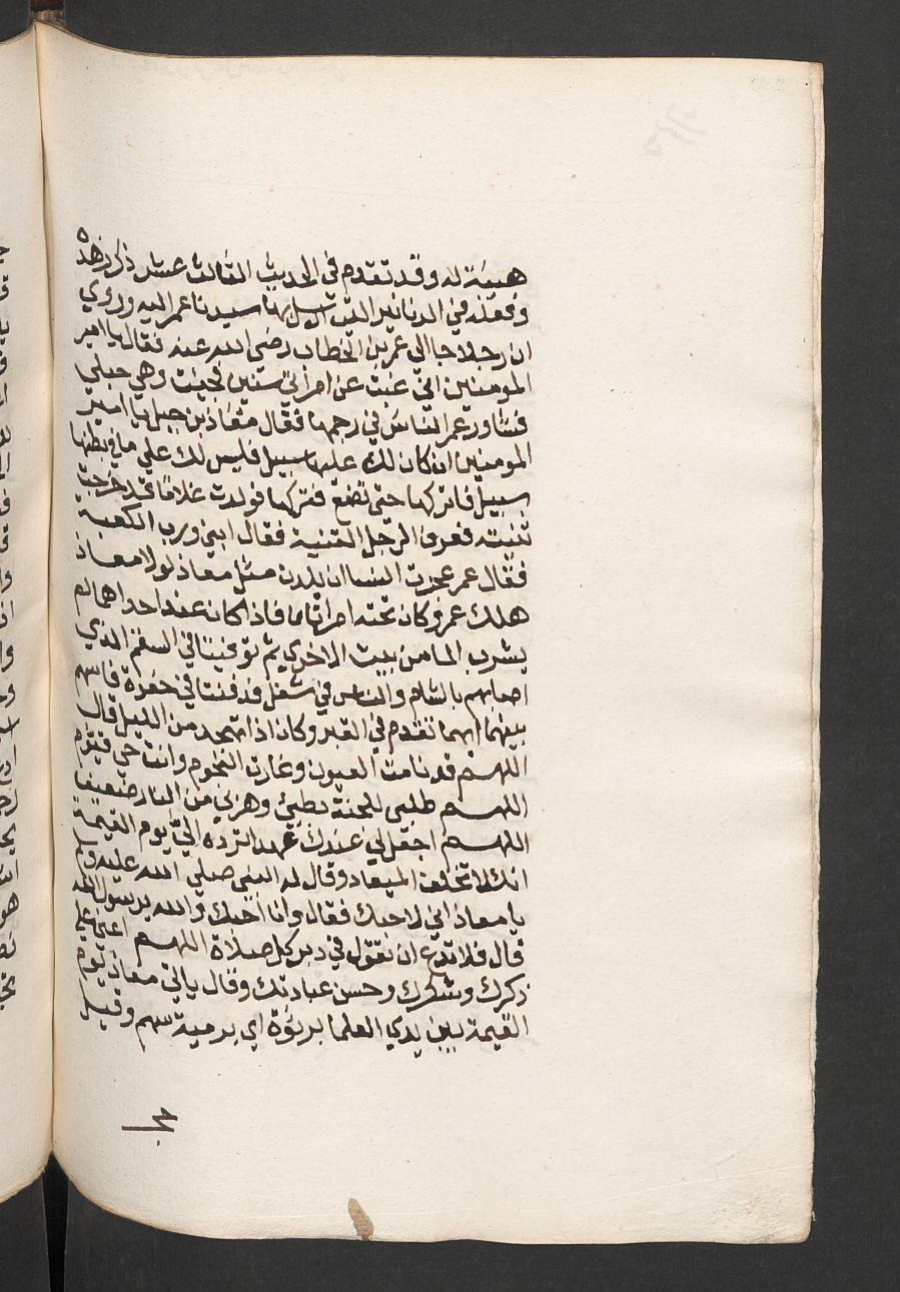 هيبة له وقد تقدم في الحديث الثالث عشر ذكر زهده
وفعله في الدنانير التي ارسل بها سيدنا عمر اليه وروي
ان رجلا جا الي عمر بن الخطاب رضي الله عنه فقال يا امير
المومنين اني غبت عن امراتي سنتين فجيت وهي حبلي
فشاور عمر الناس في رجمها فقال معاذ بن جبل يا امير
المومنين ان كان لك عليها سبيل فليس لك علي ما في بطنها
سبيل فاتركها حتي تضع فتركها فولدت غلاما قد خرجت
ثنيته فعرف الرجل الثنية فقال ابني ورب الكعبة
فقال عمر عجزت النسا ان يلدن مثل معاذ لولا معاذ
هلك عمر وكان تحته امراتان فاذا كان عند احداهما لم
يشرب الما من بيت الاخري ثم توفيتا في السقم الذي
اصابهم بالشام والناس في شغل فدفنتا في حفرة فاسهم
بينهما ايهما تقدم في القبر وكان اذا تهجد من الليل قال
اللهم قد نامت العيون وغارت النجوم وانت حي قيوم
اللهم طلبي للجنة بطيئ وهربي من النار ضعيف
اللهم اجعل لي عندك عهدا ترده اليّ يوم القيمة
انك لا تخلف الميعاد وقال له النبي صلي الله عليه وسلم
يا معاذ اني لاحبك فقال وانا احبك والله يرسول الله
قال فلا تدع ان تقول في دبر كل صلاة اللهم اعني علي
ذكرك وشكرك وحسن عبادتك وقال ياتي معاذ يوم
القيمة بين يدي العلما برتوة اي برمية سهم وقيل